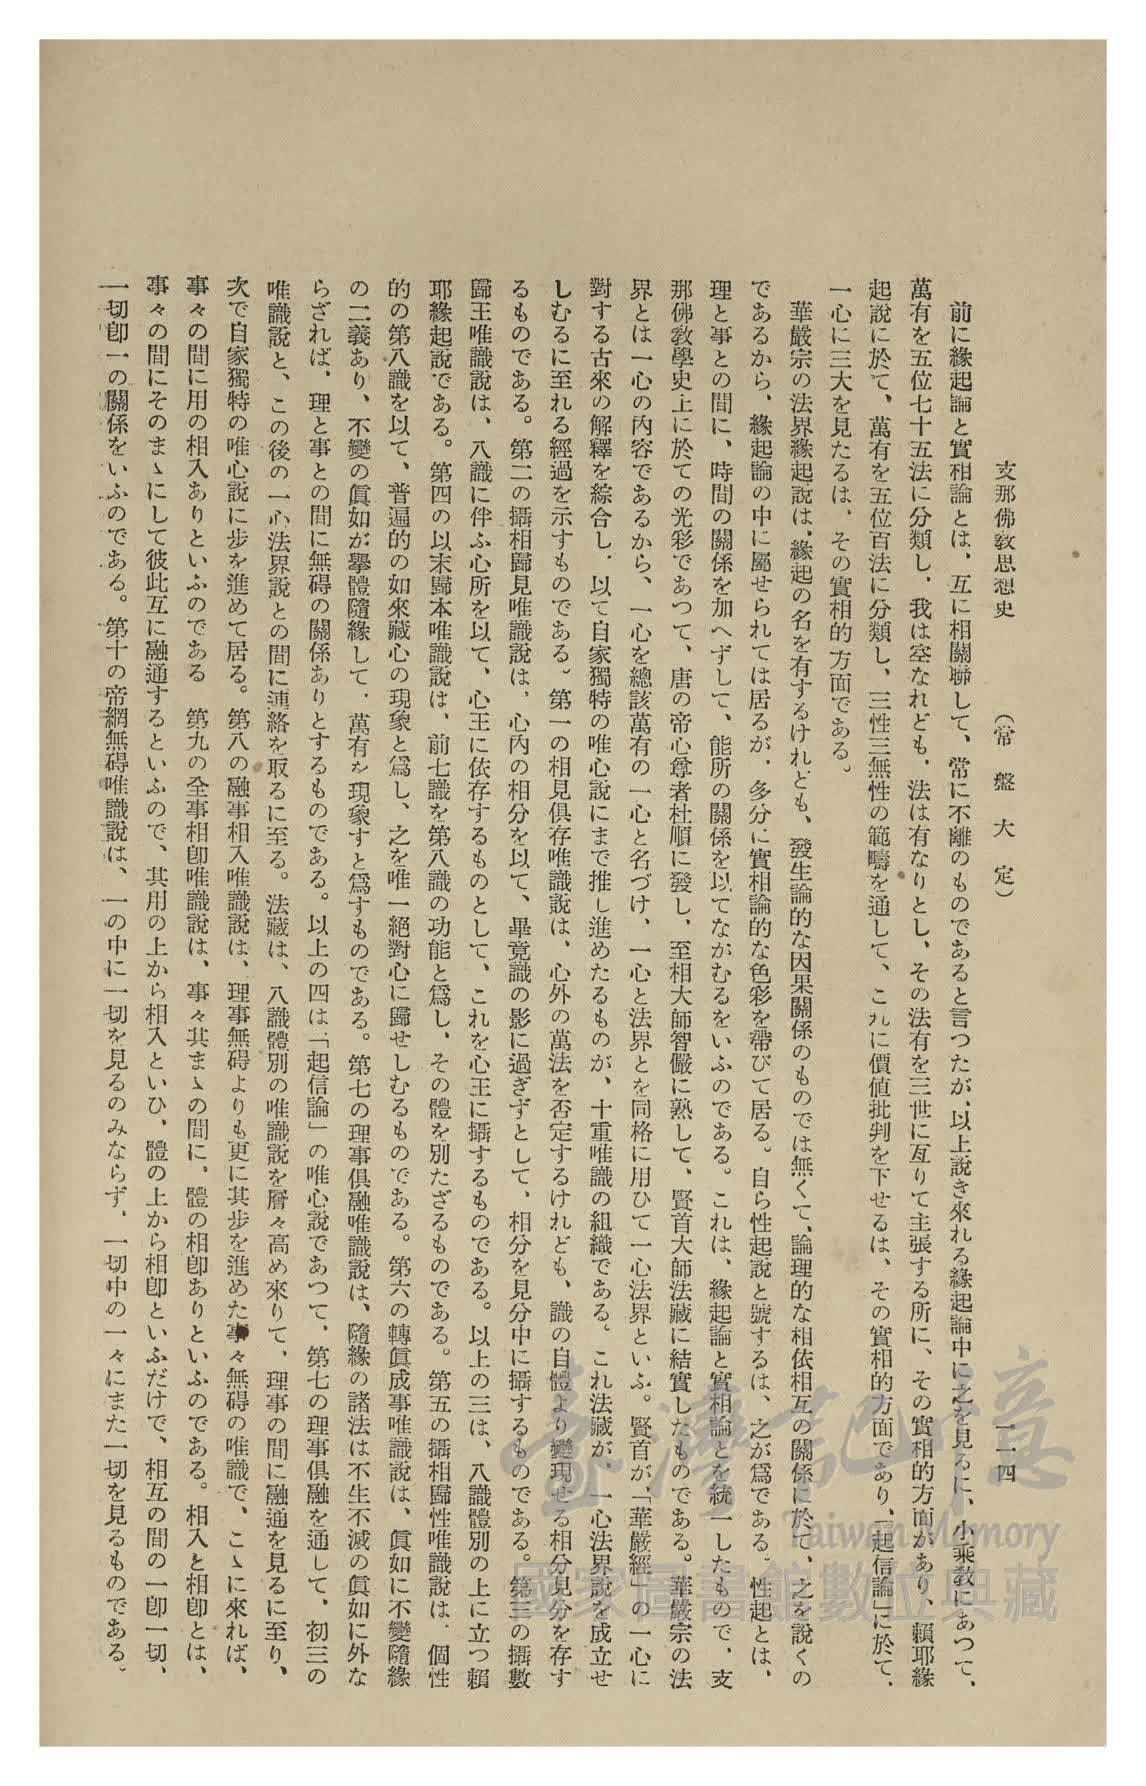 支那佛敎思想史　（常盤大定）　一一四
前に緣起論と實相論とは、互に相關聯して、常に不離のものであると言つたが、以上說き來れる緣起論中に之を見るに、小乘敎にあつて、
萬有を五位七十五法に分類し、我は空なれども、法は有なりとし、その法有を三世に亙りて主張する所に、その實相的方面があり、賴耶緣
起說に於て、萬有を五位百法に分類し、三性三無性の範疇を通して、これに價値批判を下せるは、その實相的方面であり、「起信論」に於て、
一心に三大を見たるは、その實相的方面である。
華嚴宗の法界緣起說は、緣起の名を有するけれども、發生論的な因果關係のものでは無くて、論理的な相依相互の關係に於て、之を說くの
であるから、緣起論の中に屬せられては居るが、多分に實相論的な色彩を帶びて居る。自ら性起說と號するは、之が爲である。性起とは、
理と事との間に、時間の關係を加へずして、能所の關係を以てながむるをいふのである。これは、緣起論と實相論とを統一したもので、支
那佛敎學史上に於ての光彩であつて、唐の帝心尊者杜順に發し、至相大師智儼に熟して、賢首大師法藏に結實したものである。華嚴宗の法
界とは一心の內容であるから、一心を總該萬有の一心と名づけ、一心と法界とを同格に用ひて一心法界といふ。賢首が、「華嚴經」の一心に
對する古來の解釋を綜合し、以て自家獨特の唯心說にまで推し進めたるものが、十重唯識の組織である。これ法藏が、一心法界說を成立せ
しむるに至れる經過を示すものである。第一の相見俱存唯識說は、心外の萬法を否定するけれども、識の自體より變現せる相分見分を存す
るものである。第二の攝相歸見唯識說は、心內の相分を以て、畢竟識の影に過ぎずとして、相分を見分中に攝するものである。第三の攝數
歸王唯識說は、八識に伴ふ心所を以て、心王に依存するものとして、これを心王に攝するものである。以上の三は、八識體別の上に立つ賴
耶緣起說である。第四の以末歸本唯識說は、前七識を第八識の功能と爲し、その體を別たざるものである。第五の攝相歸性唯識說は、個性
的の第八識を以て、普遍的の如來藏心の現象と爲し、之を唯一絕對心に歸せしむるものである。第六の轉眞成事唯識說は、眞如に不變隨緣
の二義あり、不變の眞如が擧體隨緣して、萬有を現象すと爲すものである。第七の理事俱融唯識說は、隨緣の諸法は不生不滅の眞如に外な
らざれば、理と事との間に無碍の關係ありとするものである。以上の四は「起信論」の唯心說であつて、第七の理事俱融を通して、初三の
唯識說と、この後の一心法界說との間に連絡を取るに至る。法藏は、八識體別の唯識說を層々高め來りて、理事の間に融通を見るに至り、
次で自家獨特の唯心說に步を進めて居る。第八の融事相入唯識說は、理事無碍よりも更に其步を進めた事々無碍の唯識で、こゝに來れば、
事々の間に用の相入ありといふのである　第九の全事相卽唯識說は、事々其まゝの間に、體の相卽ありといふのである。相入と相卽とは、
事々の間にそのまゝにして彼此互に融通するといふので、其用の上から相入といひ、體の上から相卽といふだけで、相互の間の一卽一切、
一切卽一の關係をいふのである。第十の帝網無碍唯識說は、一の中に一切を見るのみならず、一切中の一々にまた一切を見るものである。
臺灣記憶
Taiwan Memory
國家圖書館數位典藏